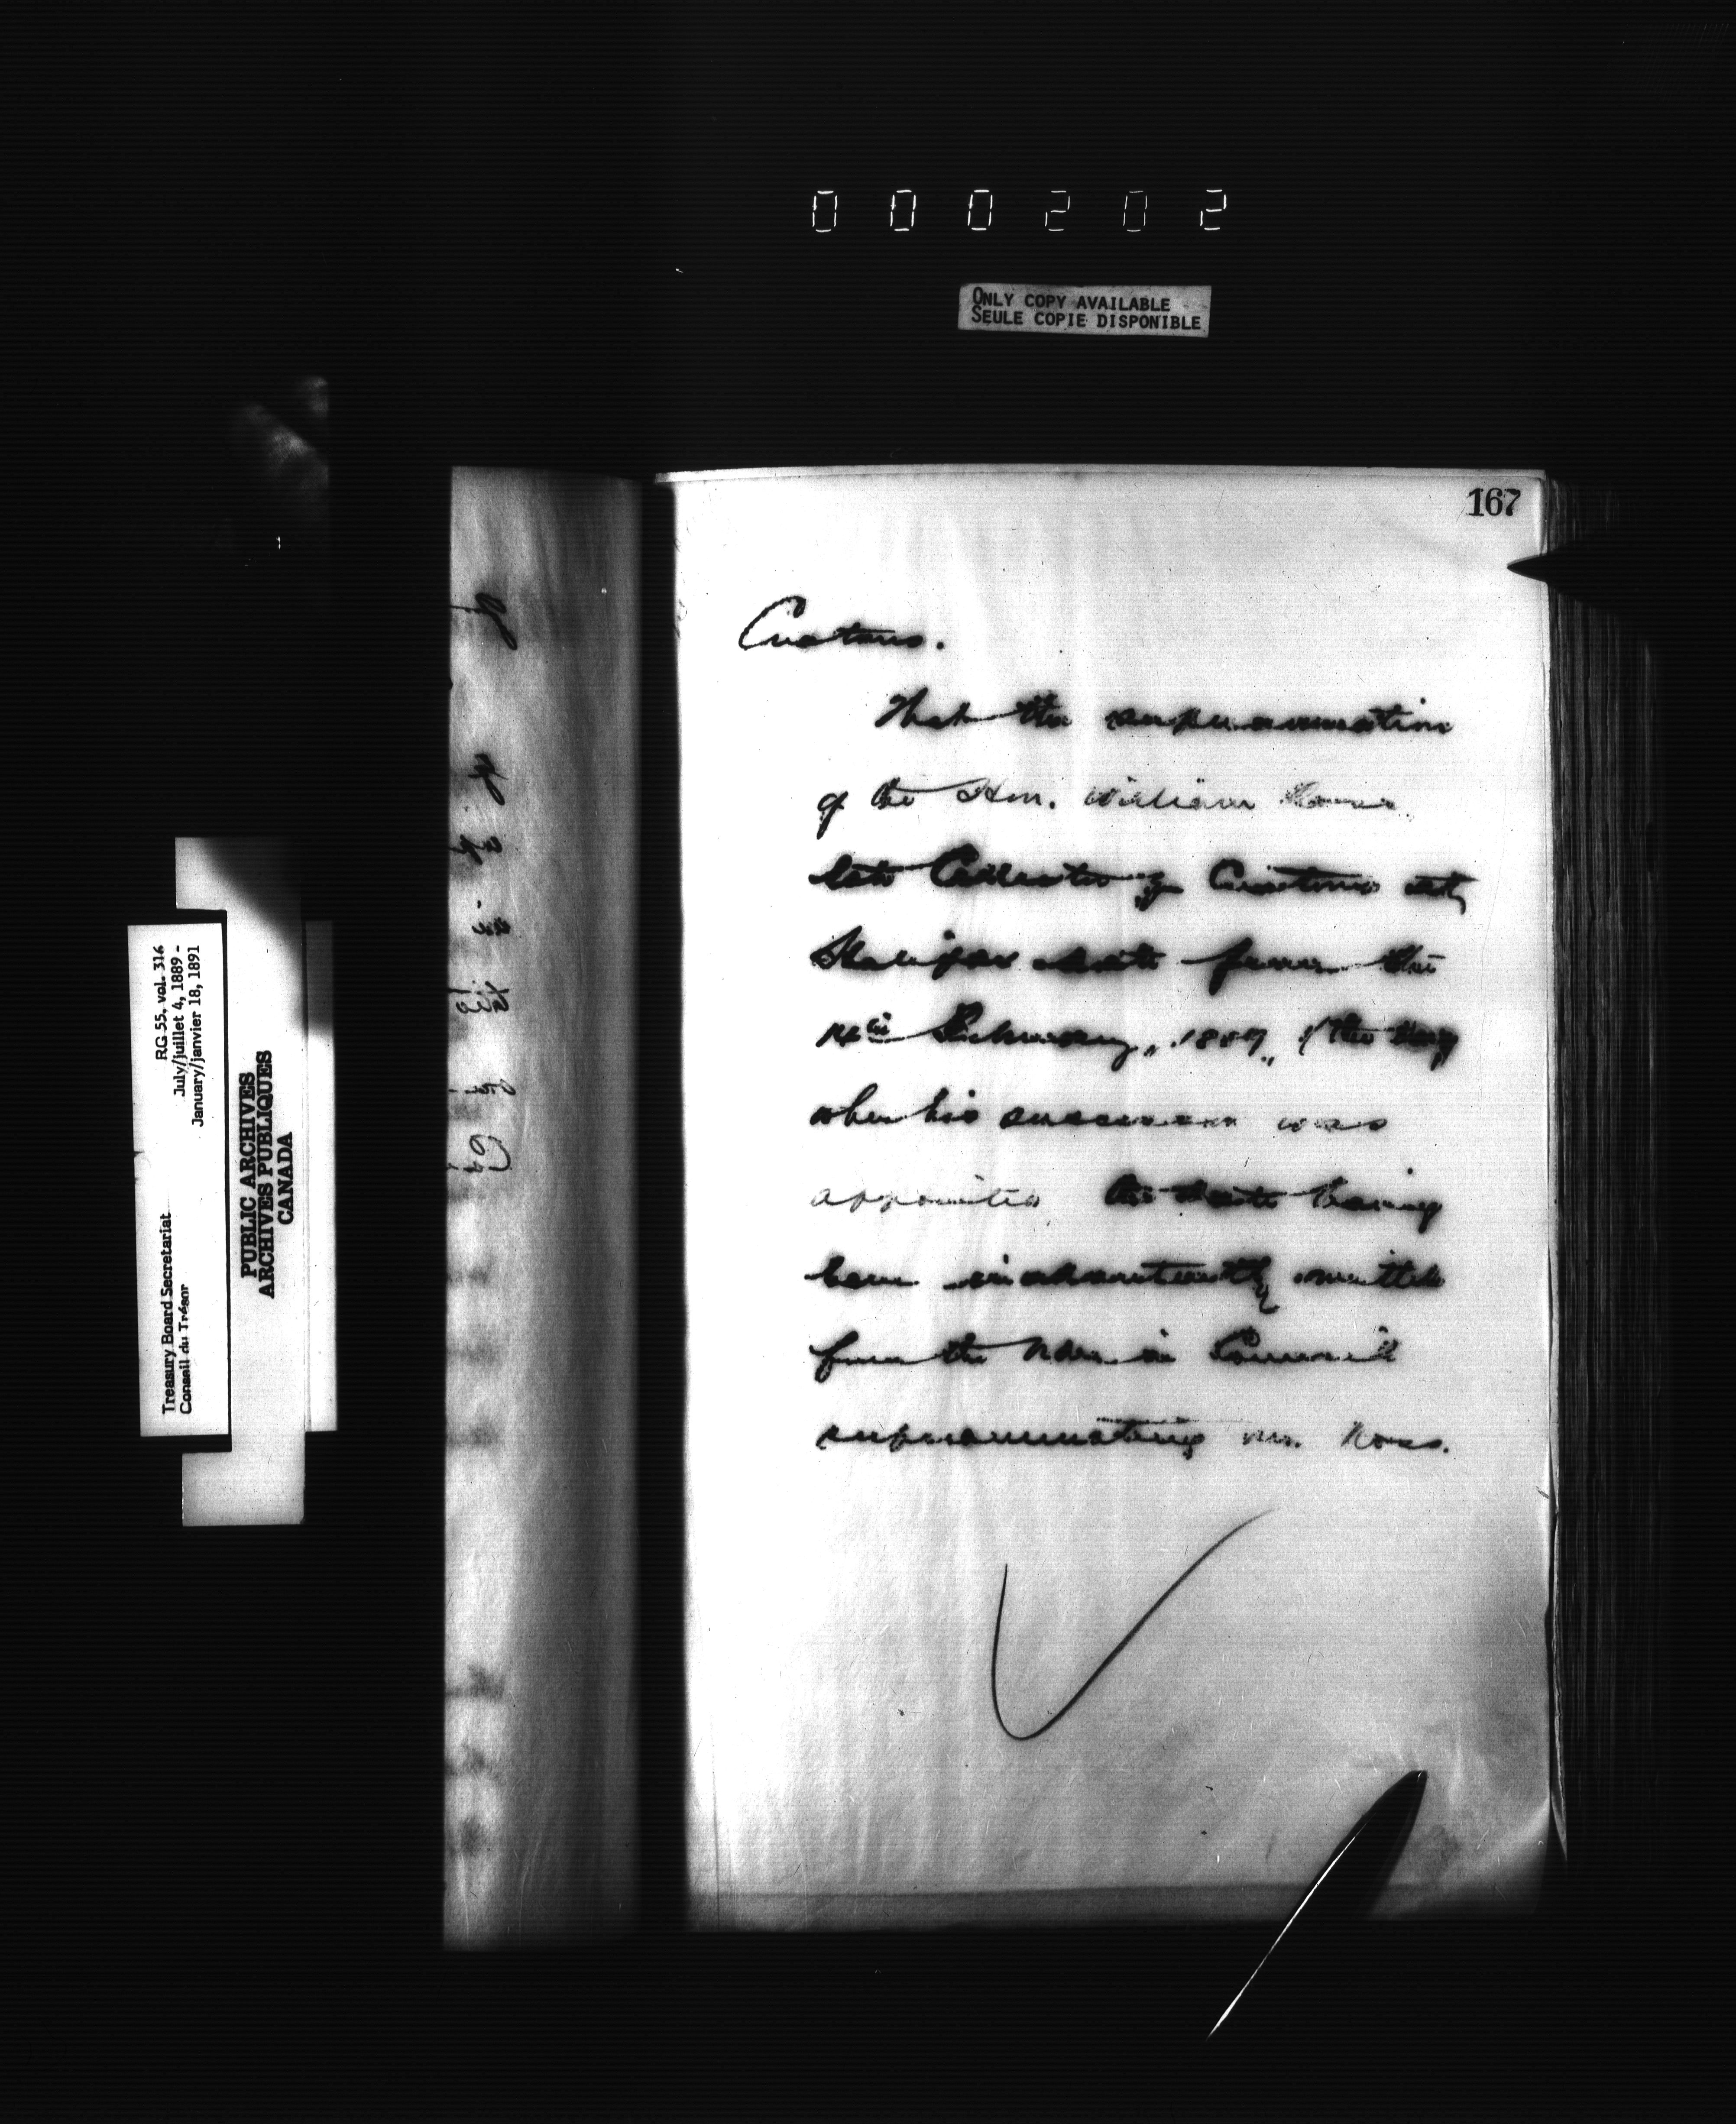 000202
ONLY COPY AVAILABLE
SEULE COPIE DISPONIBLE
167
Customs.
That the superannuation
of the Hon. William Ross
late Collector of Customs at
Halifax date from the
14th February, 1889, (the day
when his successor was
appointed the date having
been inadvertently omitted
from the Order in Council
superannuating Mr. Ross.
RG 55, vol. 316
July/juillet 4, 1889 -
January/janvier 18, 1891
Treasury Board Secretariat
Conseil du Trésor
PUBLIC ARCHIVES
ARCHIVES PUBLIQUES
CANADA